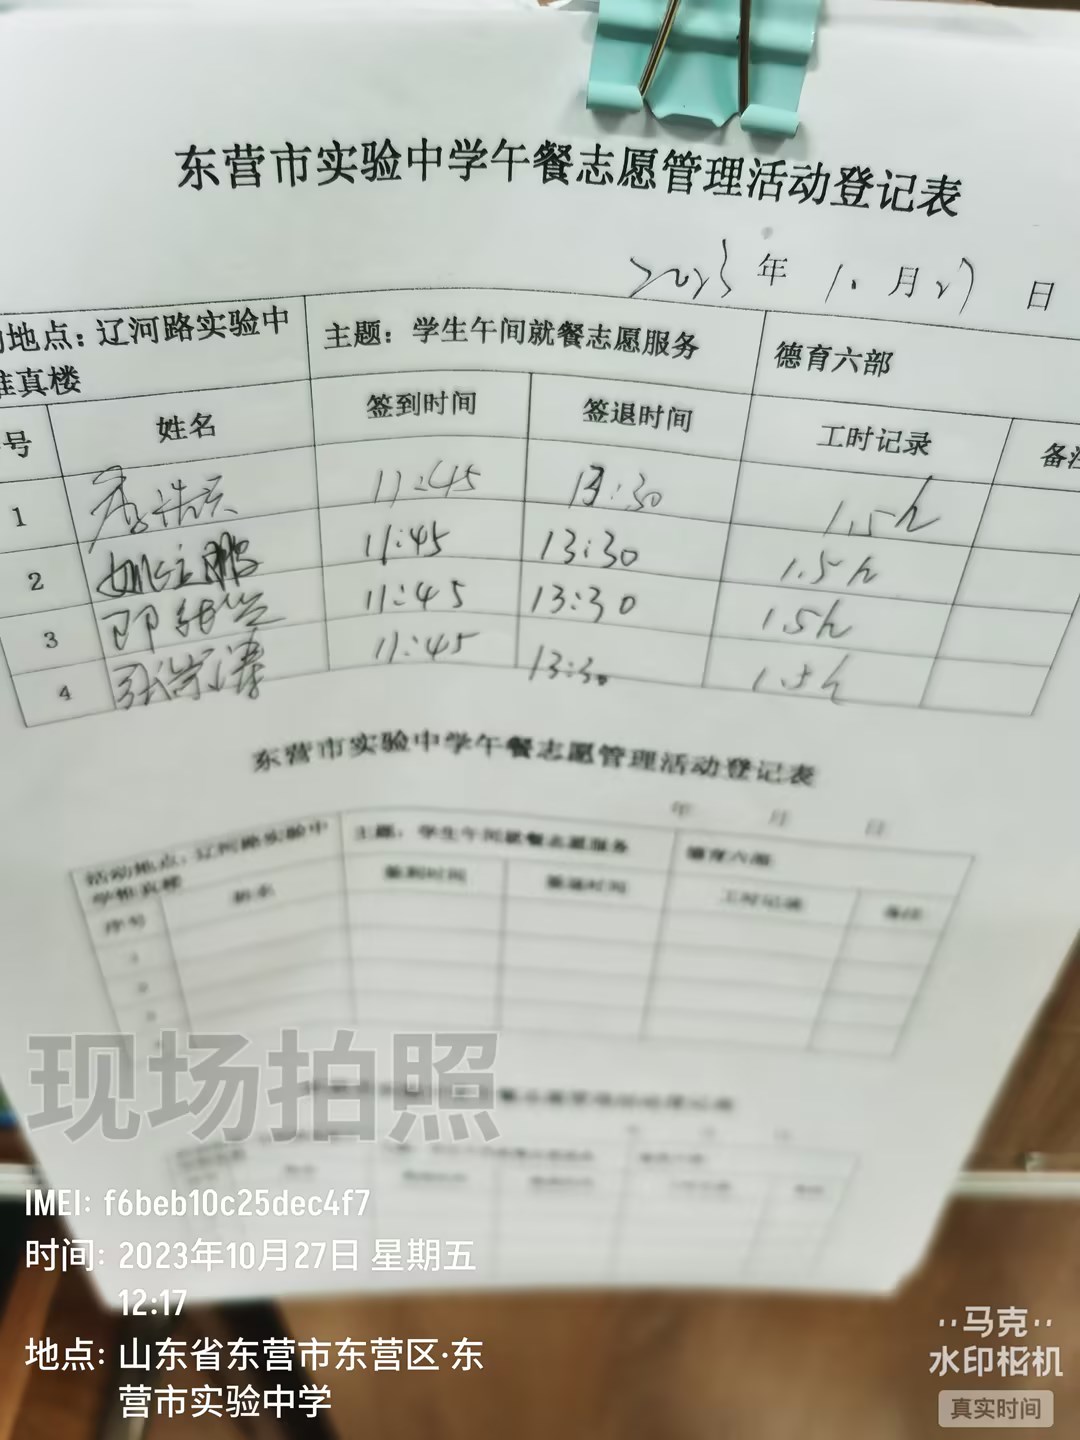 东营市实验中学午餐志愿管理活动登记表
2023年10月27日
地点：辽河路实验中 主题：学生午间就餐志愿服务 德育六部
真楼
号 姓名 签到时间 签退时间 工时记录 备注
1 11:45 13:30 1.5h
2 姚立鹏 11:45 13:30 1.5h
3 11:45 13:30 1.5h
4 张崇涛 11:45 13:30 1.5h
东营市实验中学午餐志愿管理活动登记表
年 月 日
活动地点：辽河路实验中 主题：学生午间就餐志愿服务 德育六部
学惟真楼
序号 姓名 签到时间 签退时间 工时记录 备注
1
2
3
现场拍照
IMEI: f6beb10c25dec4f7
时间: 2023年10月27日 星期五
12:17
地点: 山东省东营市东营区·东
营市实验中学
马克
水印相机
真实时间